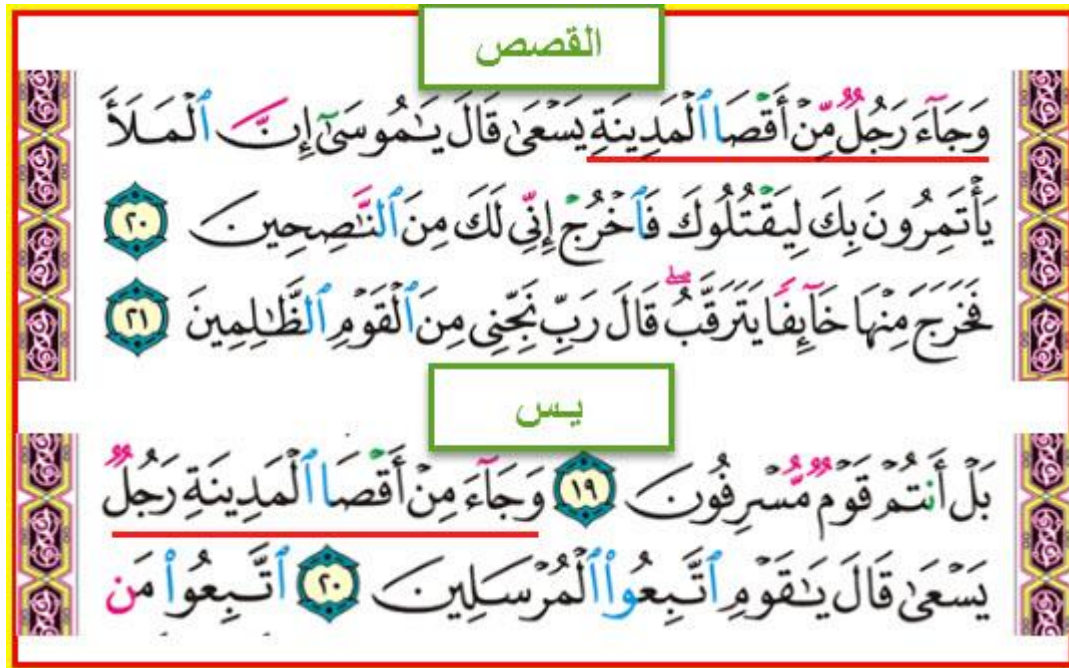 القصص
وَجَآءَ رَجُلٌ مِّنْ أَقْصَا ٱلْمَدِينَةِ يَسْعَىٰ قَالَ يَـٰمُوسَىٰٓ إِنَّ ٱلْمَلَأَ
يَأْتَمِرُونَ بِكَ لِيَقْتُلُوكَ فَٱخْرُجْ إِنِّى لَكَ مِنَ ٱلنَّـٰصِحِينَ ٢٠
فَخَرَجَ مِنْهَا خَآئِفًا يَتَرَقَّبُ ۖ قَالَ رَبِّ نَجِّنِى مِنَ ٱلْقَوْمِ ٱلظَّـٰلِمِينَ ٢١
يـس
بَلْ أَنتُمْ قَوْمٌ مُّسْرِفُونَ ١٩ وَجَآءَ مِنْ أَقْصَا ٱلْمَدِينَةِ رَجُلٌ
يَسْعَىٰ قَالَ يَـٰقَوْمِ ٱتَّبِعُوا۟ ٱلْمُرْسَلِينَ ٢٠ ٱتَّبِعُوا۟ مَن